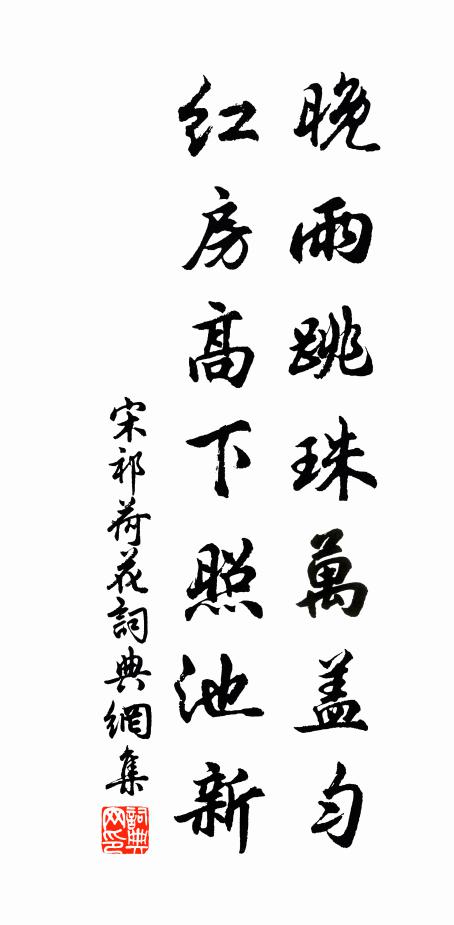 晚雨跳珠萬盖匀
红房高下照池新
宋祁荷花詞典網集
詞典网印